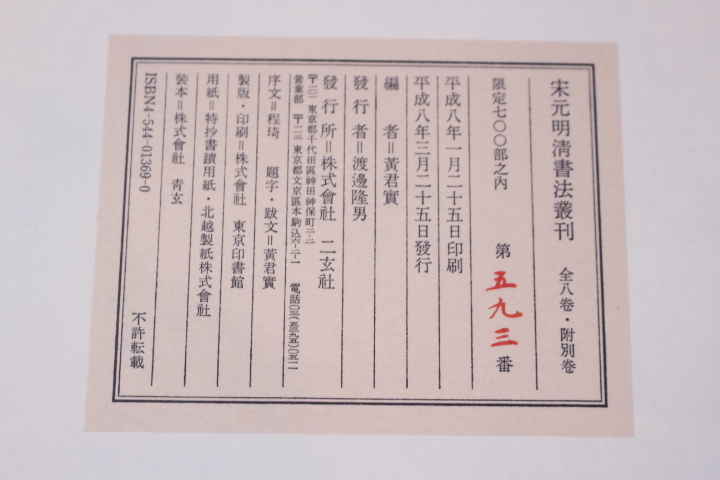 宋元明清書法叢刊 全八卷・附別卷
限定七〇〇部之內 第五九三番
平成八年一月二十五日印刷
平成八年三月二十五日發行
編者＝黃君實
發行者＝渡邊隆男
發行所＝株式會社 二玄社
〒一〇一 東京都千代田區神田神保町二-二
營業部 〒一一三 東京都文京區本駒込六-二-一 電話〇三(五三九五)〇五一一
序文＝程琦 題字・跋文＝黃君實
製版・印刷＝株式會社 東京印書館
用紙＝特抄書蹟用紙・北越製紙株式會社
裝本＝株式會社 青玄
ISBN4-544-01369-0
不許転載